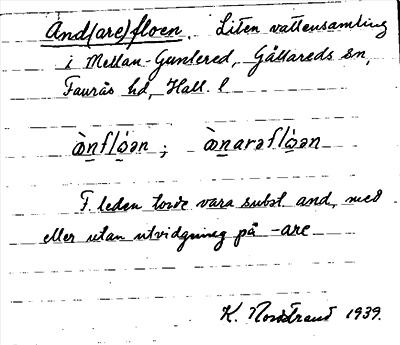 And(are)floen. Liten vattensamling
i Mellan-Gunnered, Gällareds sn,
Faurås hd, Hall. l
ànflóən ; ànarəflóən
F. leden torde vara subst. and, med
eller utan utvidgning på -are
K. Nordstrand 1939.